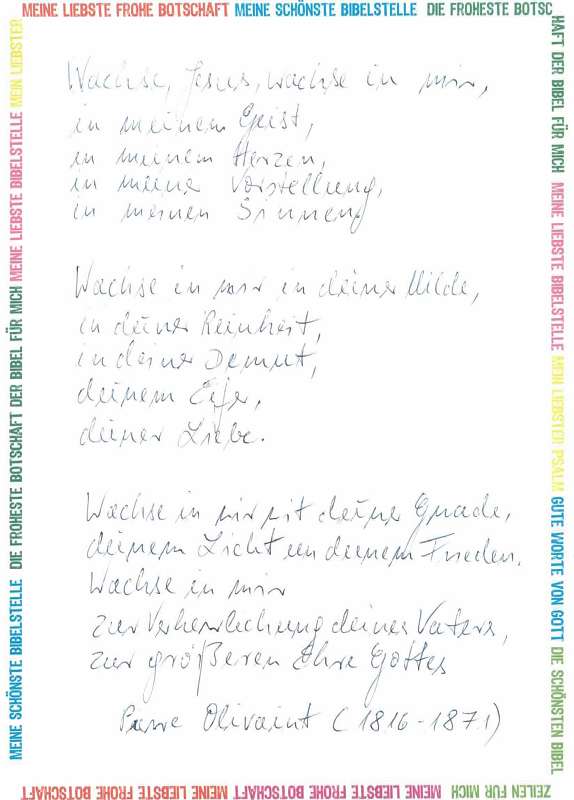 MEINE LIEBSTE FROHE BOTSCHAFT MEINE SCHÖNSTE BIBELSTELLE DIE FROHESTE BOTSC
HAFT DER BIBEL FÜR MICH MEINE LIEBSTE BIBELSTELLE MEIN LIEBSTER PSALM GUTE WORTE VON GOTT DIE SCHÖNSTEN BIBEL
ZEILEN FÜR MICH MEINE LIEBSTE FROHE BOTSCHAFT MEINE LIEBSTE FROHE BOTSCHAFT
MEINE SCHÖNSTE BIBELSTELLE DIE FROHESTE BOTSCHAFT DER BIBEL FÜR MICH MEINE LIEBSTE BIBELSTELLE MEIN LIEBSTER
Wachse, Jesus, wachse in mir,
in meinem Geist,
in meinem Herzen,
in meiner Vorstellung,
in meinen Sinnen
Wachse in mir in deiner Milde,
in deiner Reinheit,
in deiner Demut,
deinem Eifer,
deiner Liebe.
Wachse in mir mit deiner Gnade,
deinem Licht und deinem Frieden.
Wachse in mir
zur Verherrlichung deines Vaters,
zur größeren Ehre Gottes
Pierre Olivaint (1816-1871)